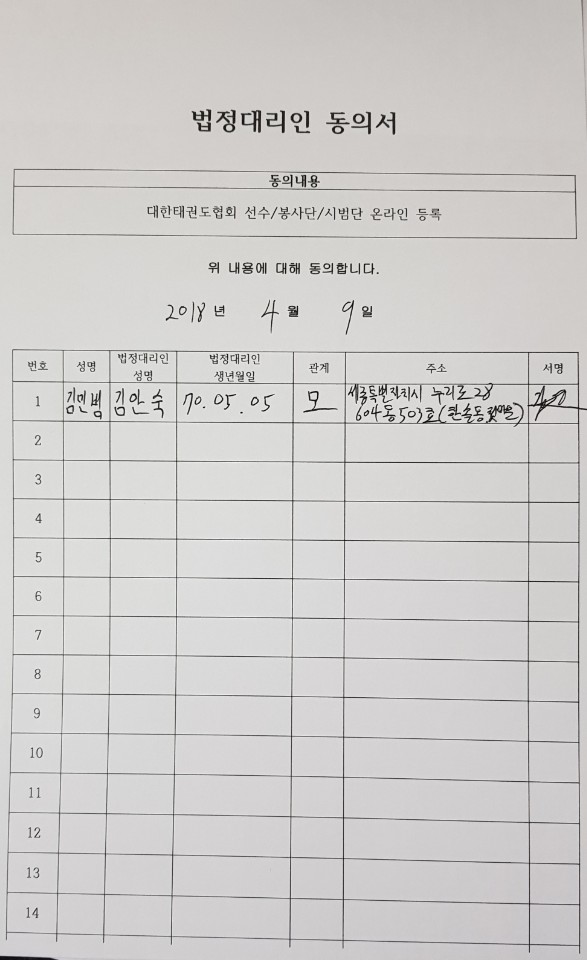 법정대리인 동의서
동의내용
대한태권도협회 선수/봉사단/시범단 온라인 등록
위 내용에 대해 동의합니다.
2018 년 4 월 9 일
번호 성명 법정대리인 성명 법정대리인 생년월일 관계 주소 서명
1 김민범 김안숙 70.05.05 모 세종특별자치시 누리로 28
604동 503호 (한솔동
2
3
4
5
6
7
8
9
10
11
12
13
14